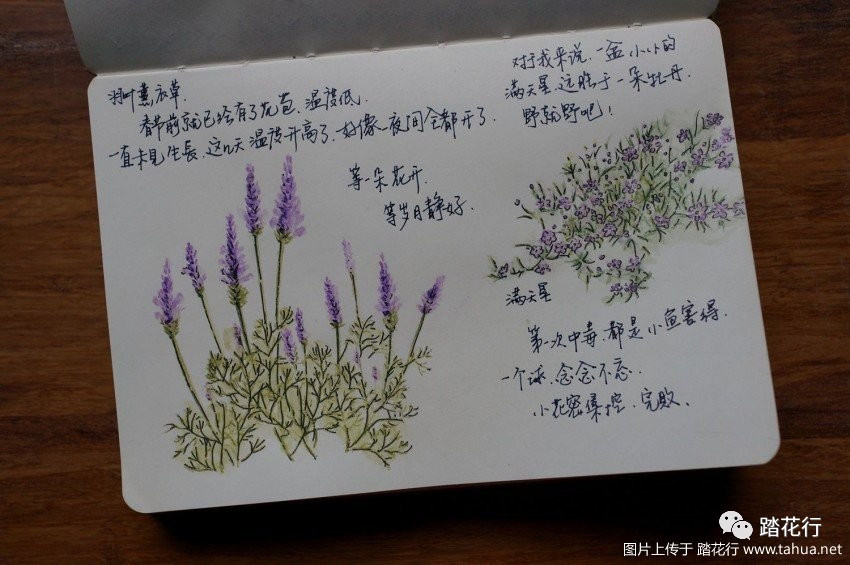 羽叶薰衣草.
春节前就已经有了花苞、温度低.
一直未见生长、这几天温度升高了、好像一夜间全都开了.
等一朵花开.
等岁月静好.
对于我来说、一盆小小的
满天星、远胜于一朵牡丹.
野就野吧!
满天星
第一次中毒、都是小鱼害得.
一个球、念念不忘.
小花密集控、完败.
踏花行
图片上传于 踏花行 www.tahua.net